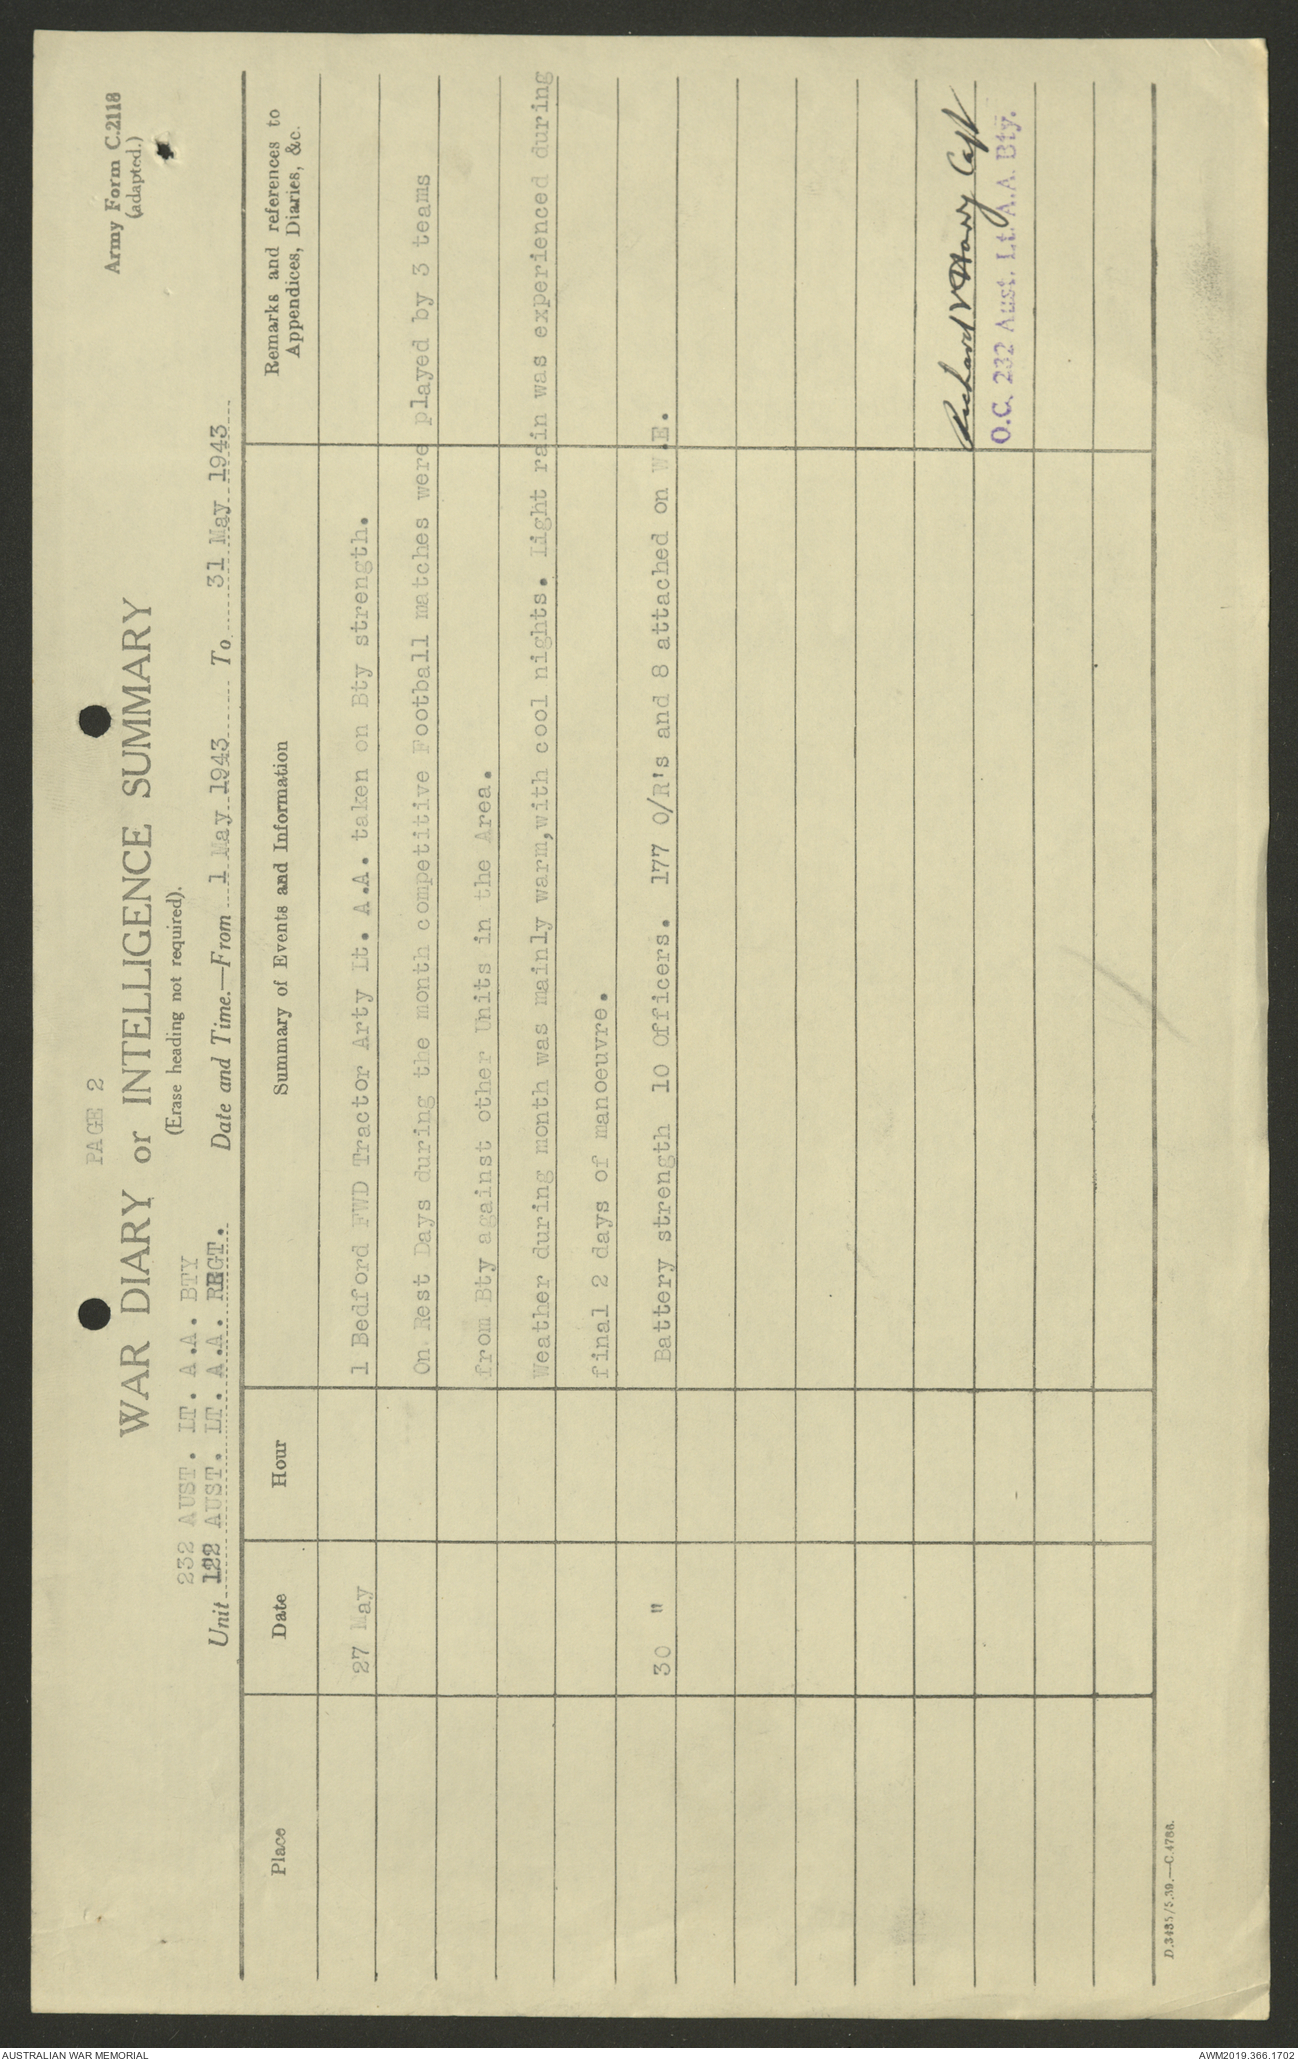 PAGE 2
Army Form C.2118
(adapted.)
WAR DIARY or INTELLIGENCE SUMMARY
(Erase heading not required).
232 AUST. LT. A.A. BTY
Unit 122 AUST. LT. A.A. REGT. Date and Time.—From 1 May 1943 To 31 May 1943
Place Date Hour Summary of Events and Information Remarks and references to
Appendices, Diaries, &c.
27 May 1 Bedford FWD Tractor Arty Lt. A.A. taken on Bty strength.
On Rest Days during the month competitive Football matches were played by 3 teams
from Bty against other Units in the Area.
Weather during month was mainly warm,with cool nights. Light rain was experienced during
final 2 days of manoeuvre.
30 " Battery strength 10 Officers. 177 O/R's and 8 attached on W.E.
Richard Capt
O.C. 232 Aust. Lt. A.A. Bty.
D.3485/5.39.—C.4788.
AUSTRALIAN WAR MEMORIAL
AWM2019.366.1702